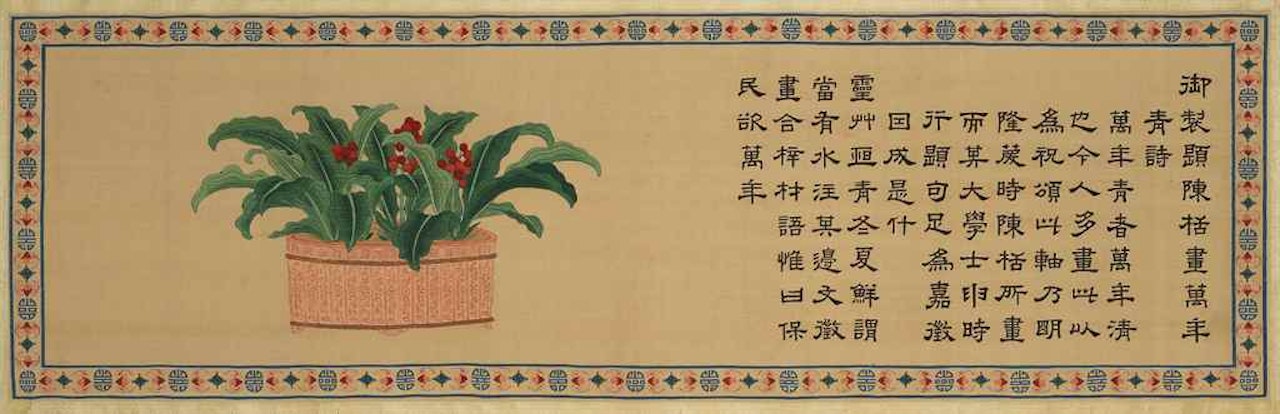 御製題陳栝畫萬年
青詩
萬年青者萬年清
也今人多畫此以
為祝頌此軸乃明
隆慶時陳栝所畫
而其大學士申時
行題句足為嘉徵
囙成是什
靈艸亙青冬夏鮮謂
當有水注其邊文徵
畫合梓材語惟曰保
民欲萬年